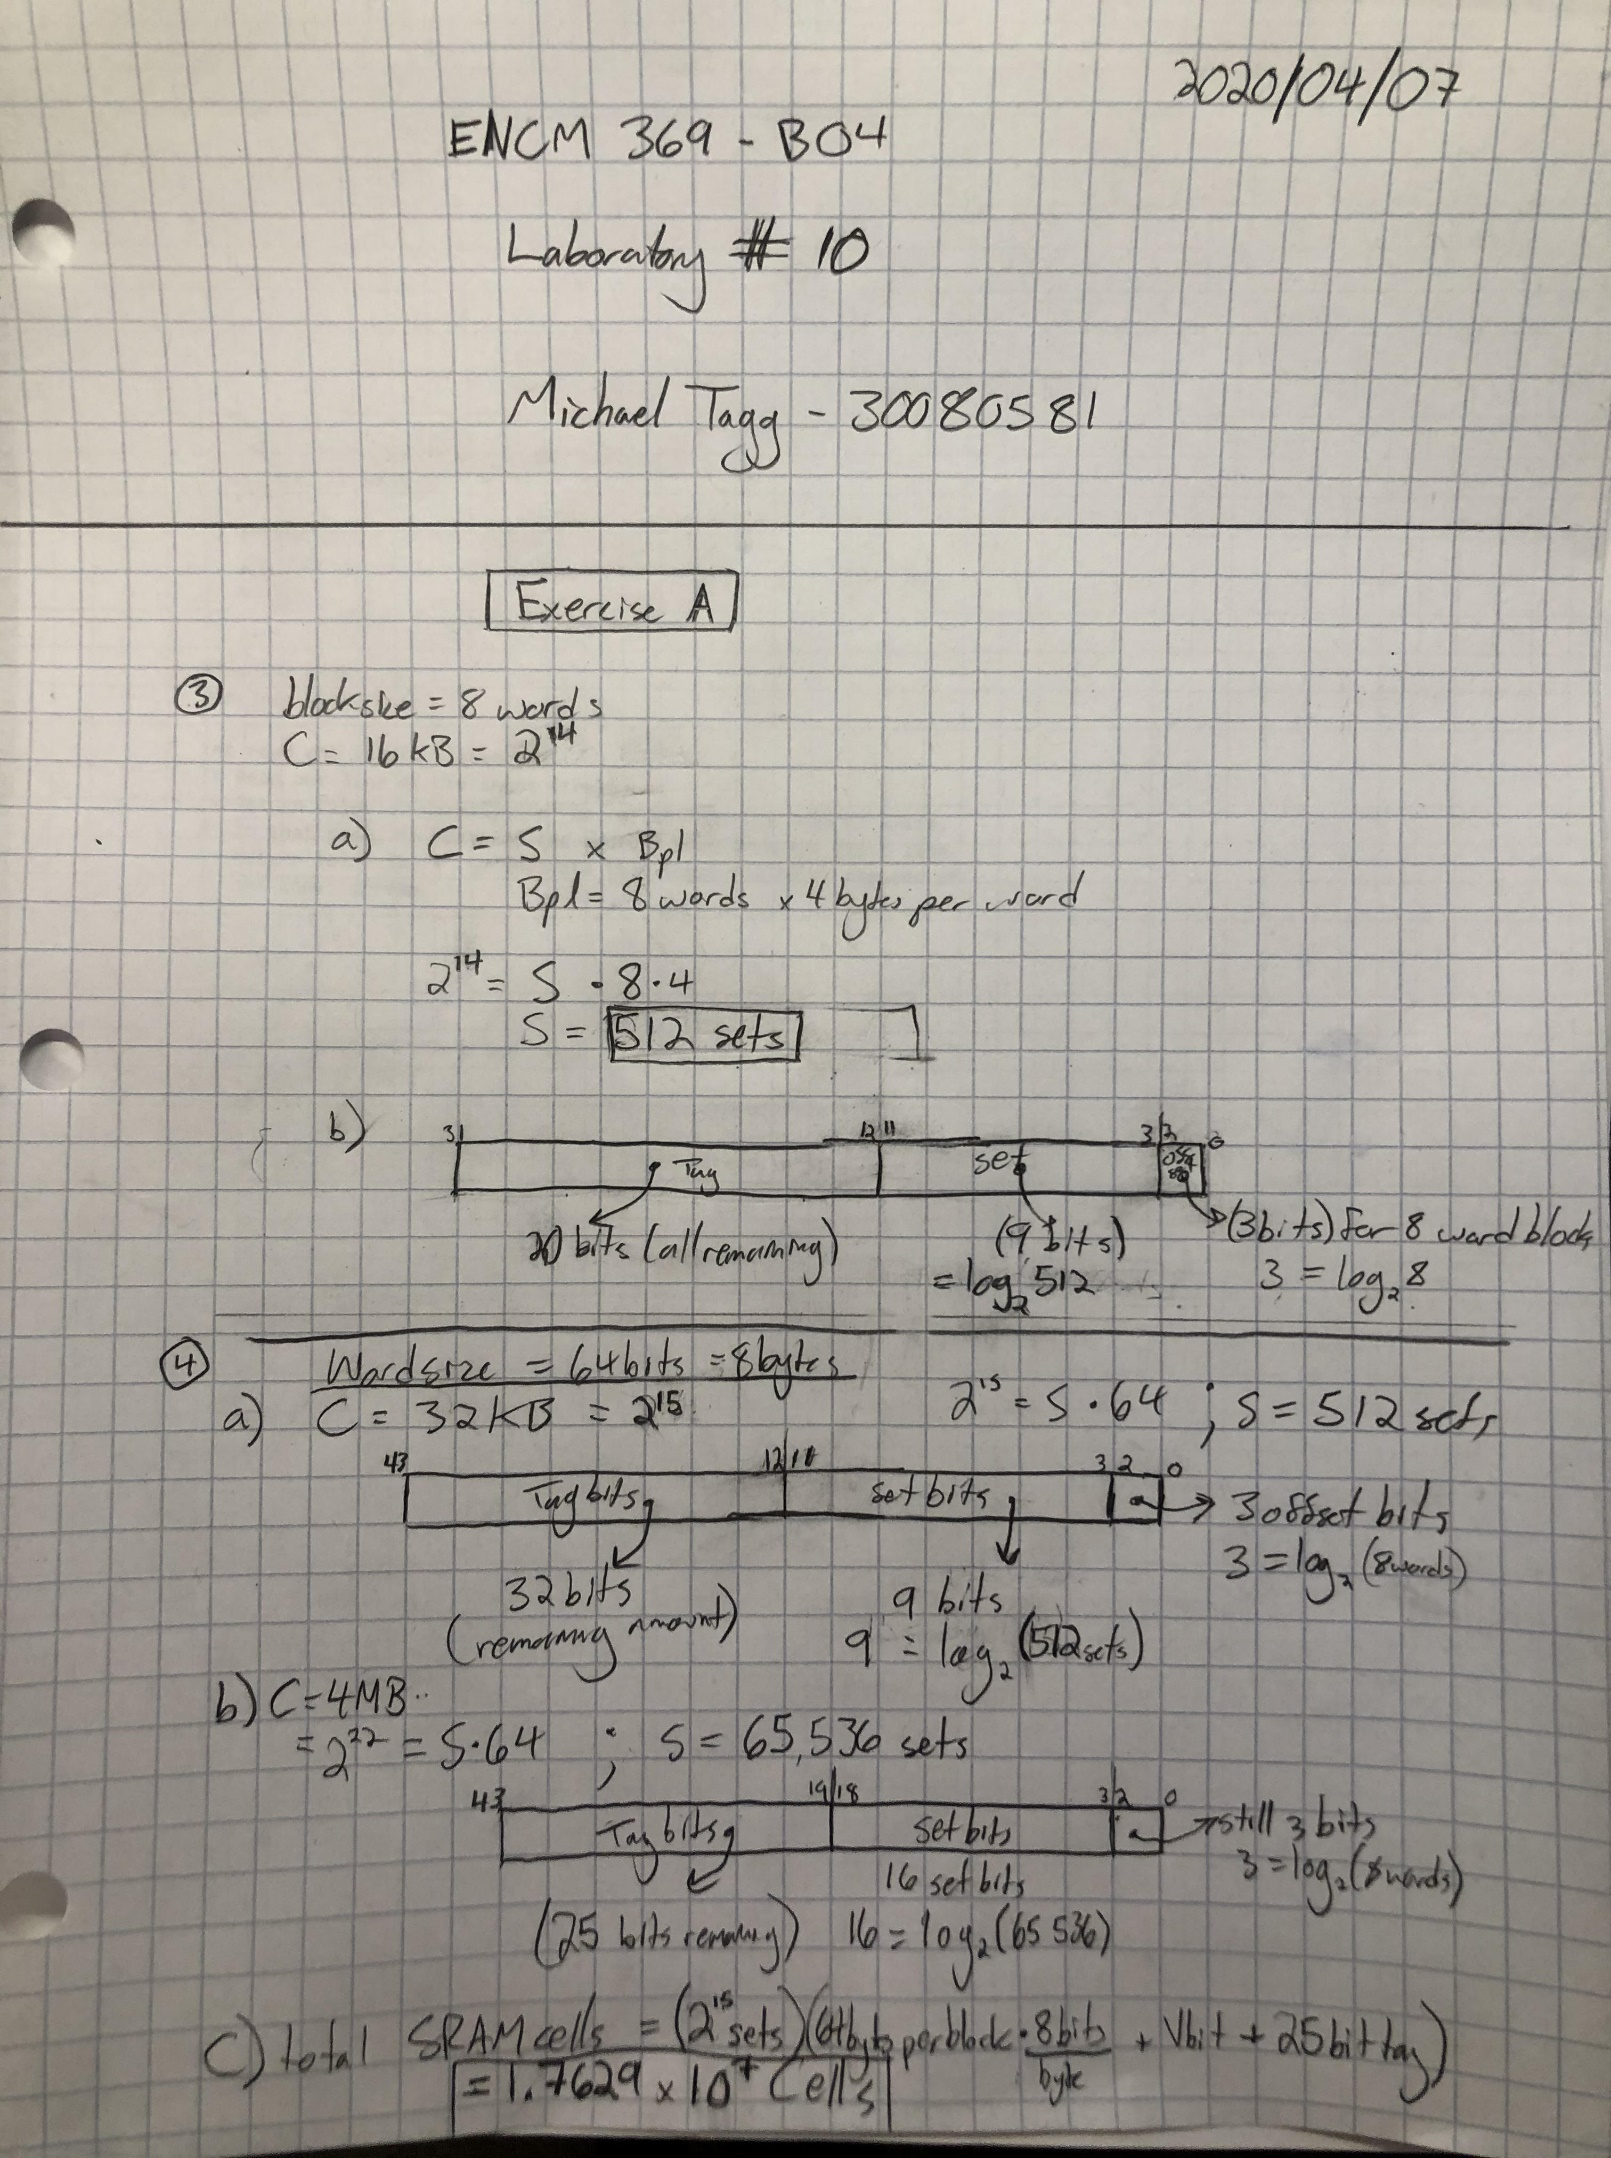 2020/04/07
ENCM 369 - B04
Laboratory # 10
Michael Tagg - 30080581
Exercise A
③ blocksize = 8 words
C = 16 kB = 2^14
a) C = S x Bpl
Bpl = 8 words x 4 bytes per word
2^14 = S · 8 · 4
S = 512 sets
b) 31 12 11 3 2 0
Tag set
20 bits (all remaining) (9 bits) (3 bits) for 8 word block
= log₂ 512 3 = log₂ 8
④ Wordsize = 64 bits = 8 bytes
a) C = 32 KB = 2^15 2^15 = S · 64 ; S = 512 sets
43 12 11 3 2 0
Tag bits set bits 3 offset bits
3 = log₂ (8 words)
32 bits 9 bits
(remaining amount) 9 = log₂ (512 sets)
b) C = 4MB
= 2^22 = S · 64 ; S = 65,536 sets
43 19 18 3 2 0
Tag bits set bits still 3 bits
16 set bits 3 = log₂ (8 words)
(25 bits remaining) 16 = log₂ (65 536)
C) total SRAM cells = (2^15 sets)(64 bytes per block · 8 bits/byte + Vbit + 25 bit tag)
= 1.7629 x 10^7 Cells